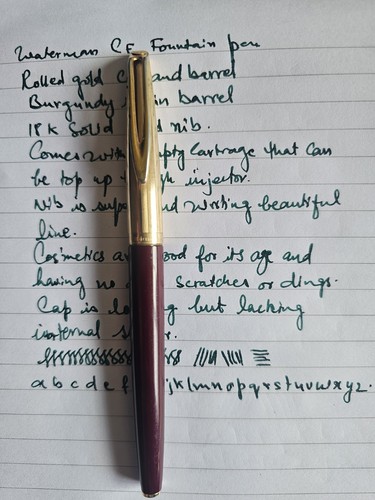 Waterman CF Fountain pen
Rolled gold and barrel
Burgundy in barrel
18K Solid nib.
Comes with empty Cartrage that can
be top up injector.
Nib is and writing beautiful
line.
Cosmetics good for its age and
having no scratches or dings.
Cap is but lacking
internal
a b c d e f jklmnopqrstuvwxyz.